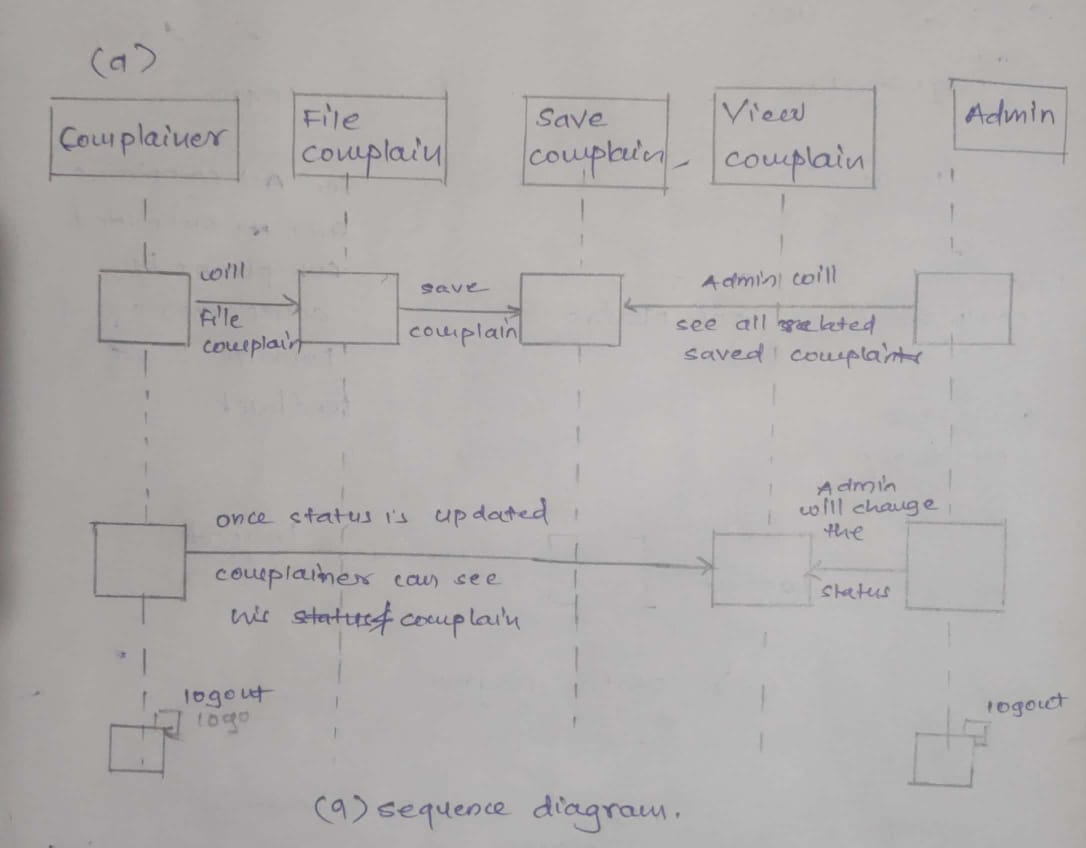 (a)
Complainer
File
complain
Save
complain
View
complain
Admin
will
File
complain
save
complain
Admin will
see all related
saved complaints
once status is updated
complainer can see
his complain
Admin
will change
the
status
logout
logo
logout
(a) sequence diagram.